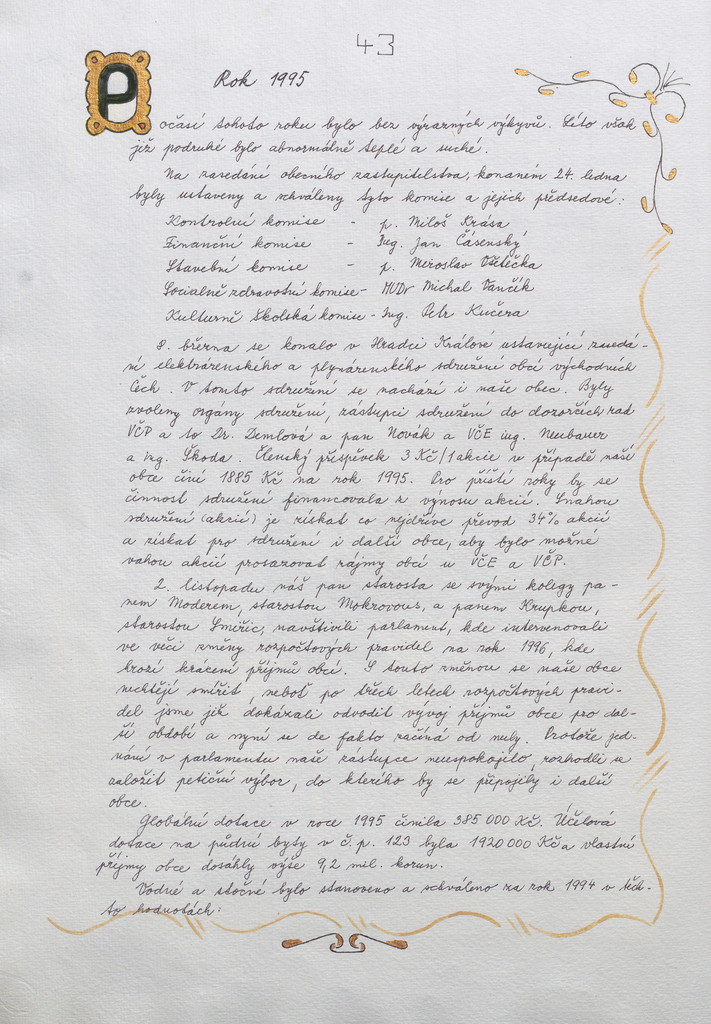 43
Rok 1995
Počasí tohoto roku bylo bez výrazných výkyvů. Léto však
již podruhé bylo abnormálně teplé a suché.
Na zasedání obecního zastupitelstva, konaném 24. ledna
byly ustaveny a schváleny tyto komise a jejich předsedové:
Kontrolní komise - p. Miloš Krása
Finanční komise - Ing. Jan Čásenský
Stavební komise - p. Miroslav Všetečka
Socialně zdravotní komise - MUDr Michal Vančík
Kulturně školská komise - Ing. Petr Kučera
8. března se konalo v Hradci Králové ustavující zasedá-
ní elektrárenského a plynárenského sdružení obcí východních
Čech. V tomto sdružení se nachází i naše obec. Byly
zvoleny orgány sdružení, zástupci sdružení do dozorčích rad
VČP a to Dr. Demlová a pan Novák a VČE ing. Neubauer
a ing. Škoda. Členský příspěvek 3 Kč/1 akcie v případě naší
obce činí 1885 Kč na rok 1995. Pro příští roky by se
činnost sdružení financovala z výnosu akcií. Snahou
sdružení (akcií) je získat co nejdříve převod 34% akcií
a získat pro sdružení i další obce, aby bylo možné
vahou akcií prosazovat zájmy obcí u VČE a VČP.
2. listopadu náš pan starosta se svými kolegy pa-
nem Moderem, starostou Mokrovous, a panem Krupkou,
starostou Smiřic, navštívili parlament, kde intervenovali
ve věci změny rozpočtových pravidel na rok 1996, kde
hrozí krácení příjmů obcí. S touto změnou se naše obce
nechtějí smířit, neboť po třech letech rozpočtových pravi-
del jsme již dokázali odvodit vývoj příjmů obce pro dal-
ší období a nyní se de fakto začíná od nuly. Protože jed-
nání v parlamentu naše zástupce neuspokojilo, rozhodli se
založit petiční výbor, do kterého by se připojily i další
obce.
Globální dotace v roce 1995 činila 385 000 Kč. Účelová
dotace na půdní byty v č. p. 123 byla 1920 000 Kč a vlastní
příjmy obce dosáhly výše 9,2 mil. korun.
Vodné a stočné bylo stanoveno a schváleno na rok 1994 v těch-
to hodnotách: